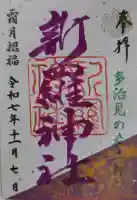 奉拝
多治見の
新羅神社
霜月招福
令和七年十一月七日